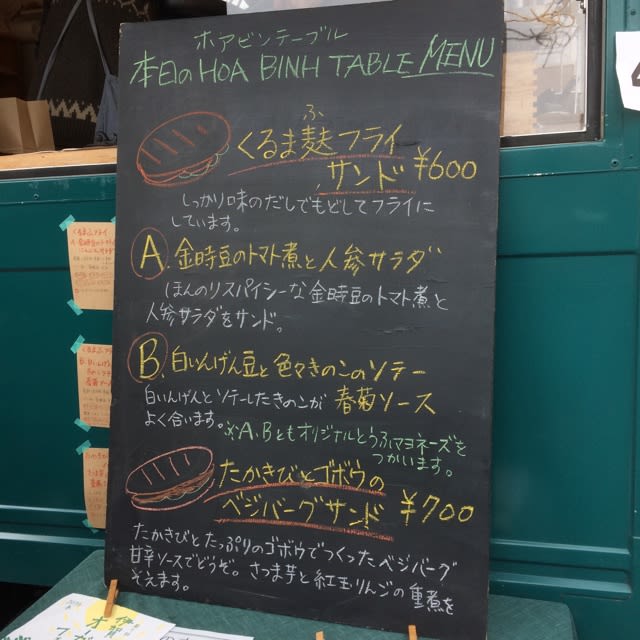 ホアビンテーブル
本日のHOA BINH TABLE MENU
ふ
くるま麩フライ
サンド ¥600
しっかり味のだしでもどしてフライに
しています。
A. 金時豆のトマト煮と人参サラダ
ほんのりスパイシーな金時豆のトマト煮と
人参サラダをサンド。
B. 白いんげん豆と色々きのこのソテー
白いんげんとソテーしたきのこが 春菊ソース
よく合います。
※A.Bともオリジナルとうふマヨネーズを
つかいます。
たかきびとゴボウの
ベジバーグサンド ¥700
たかきびとたっぷりのゴボウでつくったベジバーグ
甘辛ソースでどうぞ。さつま芋と紅玉りんごの重煮を
そえます。
くるまふフライ